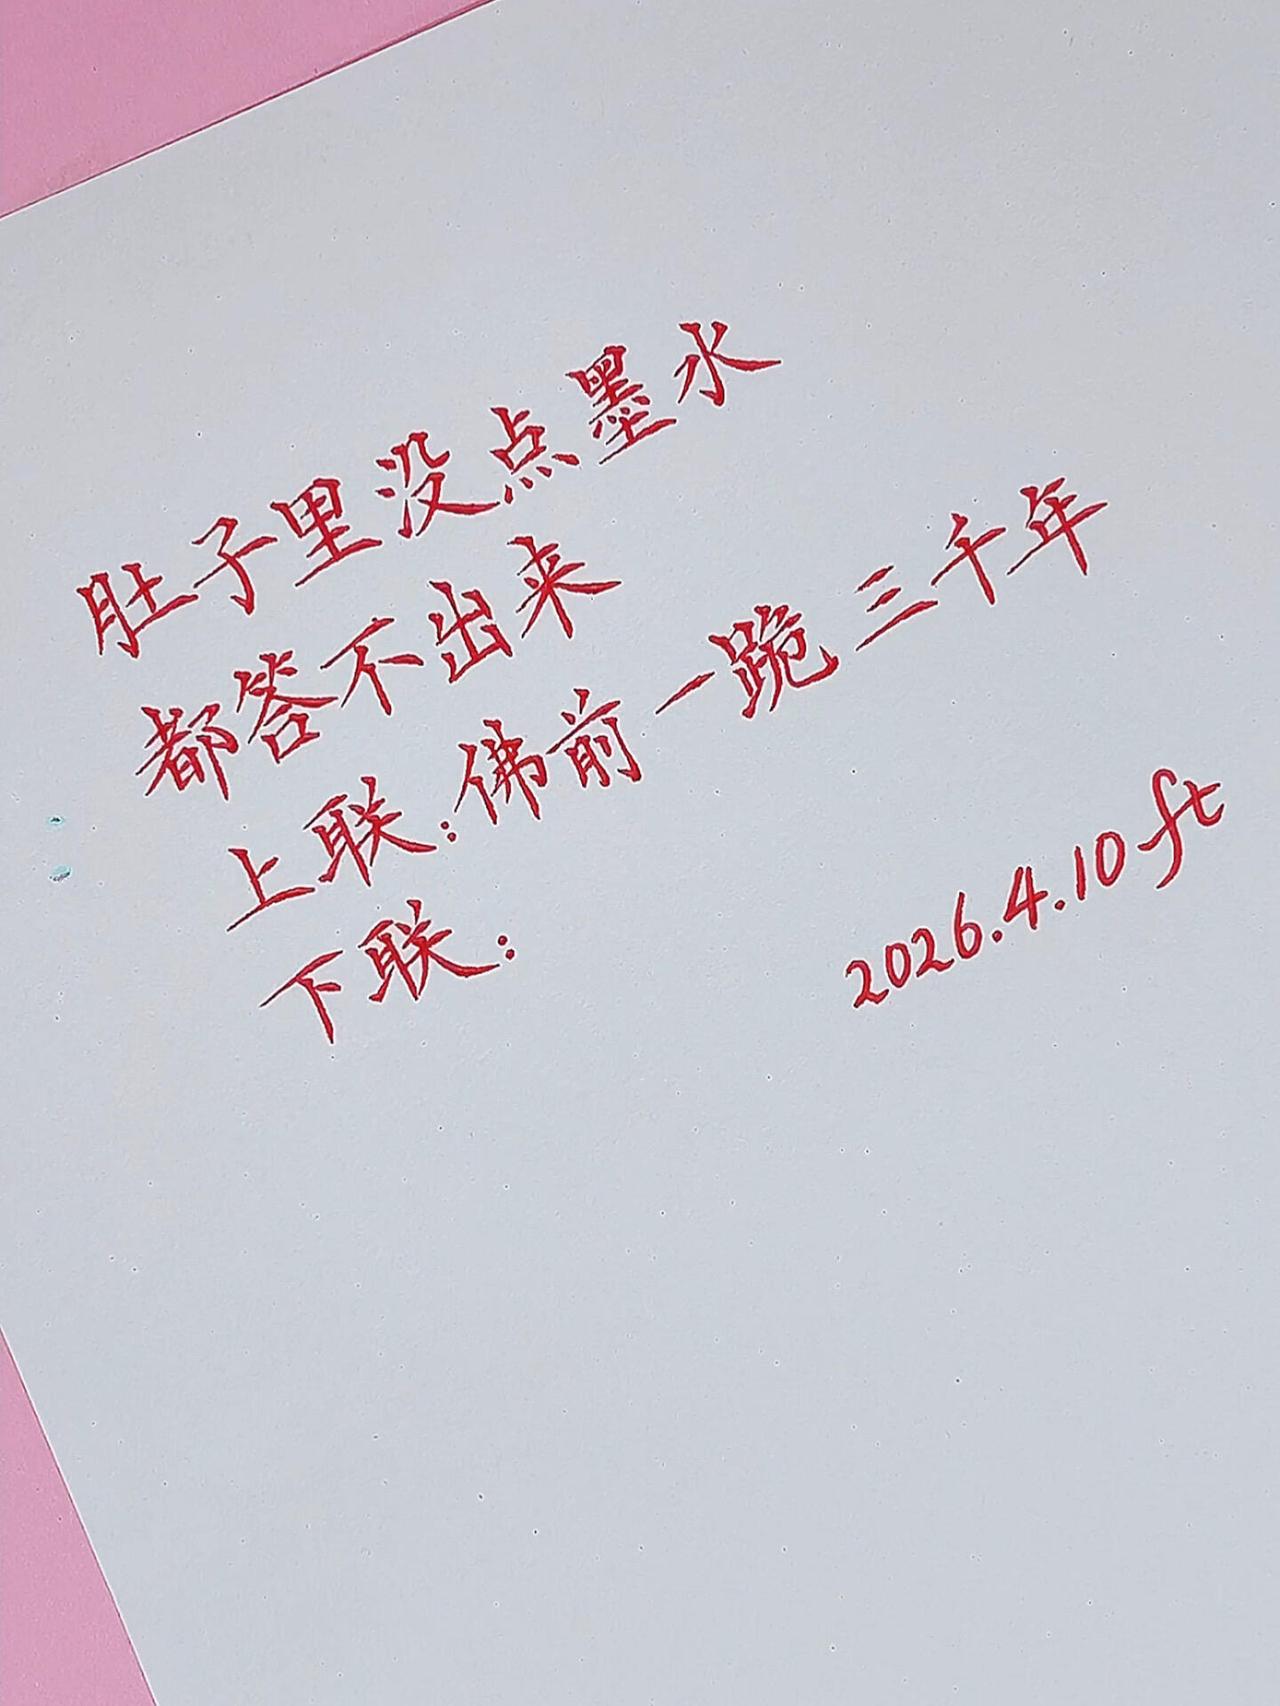 肚子里没点墨水
都答不出来
上联:佛前一跪三千年
下联:
2026.4.10 ft